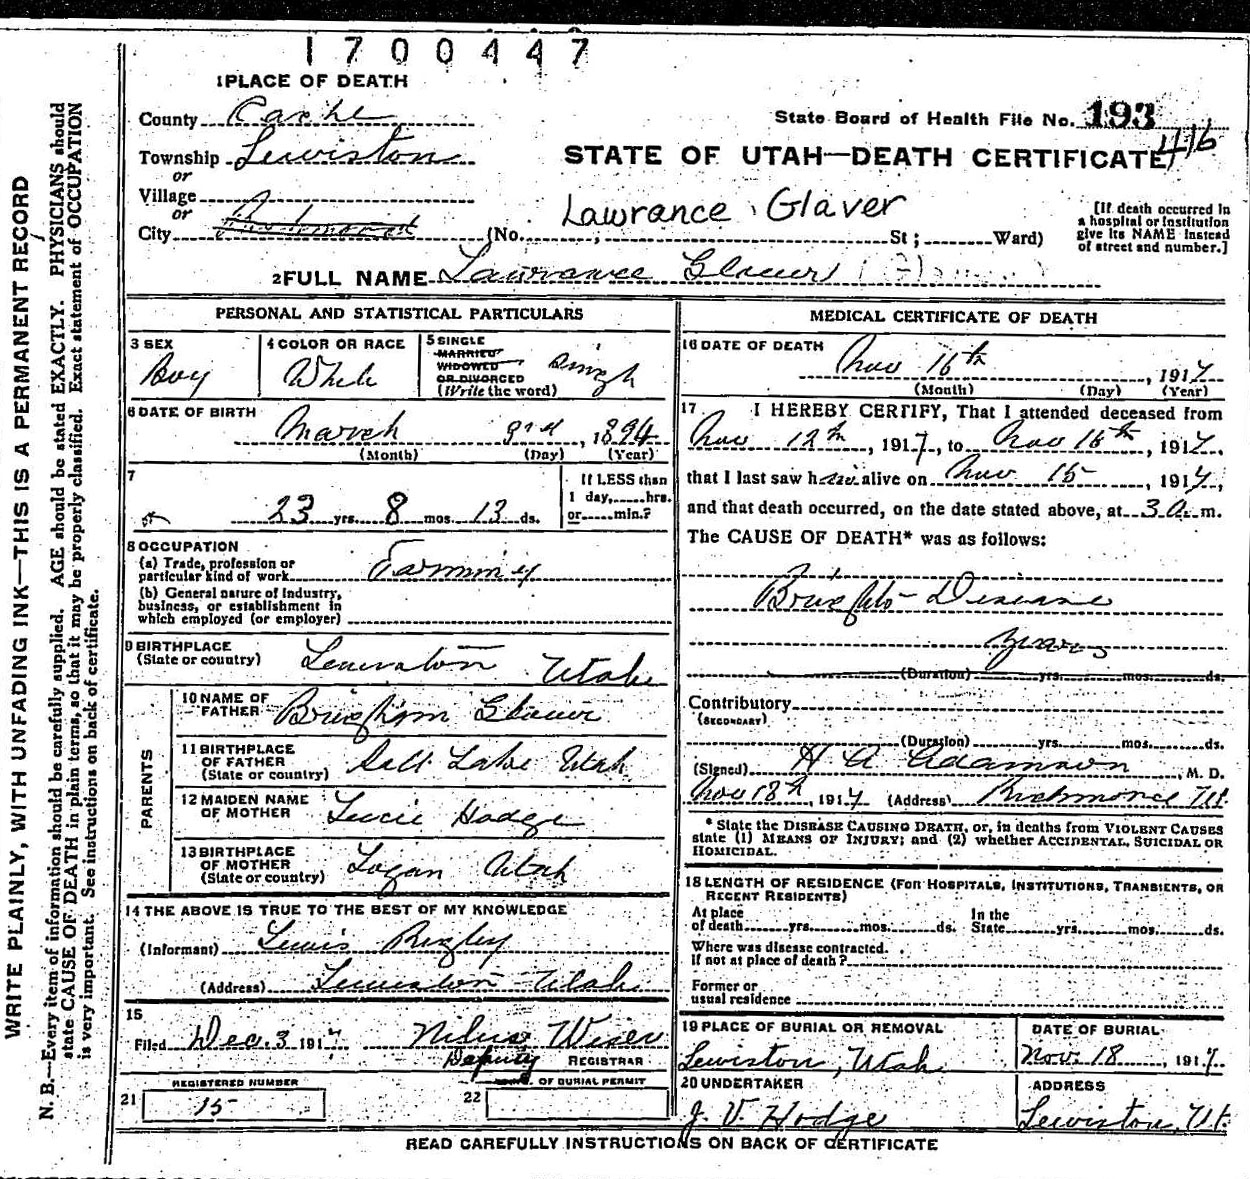 1700447
1 PLACE OF DEATH
County Cache
State Board of Health File No. 193
416
Township Lewiston
STATE OF UTAH—DEATH CERTIFICATE
or
Village
or
City Richmond (No. , St; Ward)
Lawrance Glaver
[If death occurred in
a hospital or institution
give its NAME instead
of street and number.]
2 FULL NAME Lawrance Glaver
PERSONAL AND STATISTICAL PARTICULARS
3 SEX
Boy
4 COLOR OR RACE
White
5 SINGLE
MARRIED
WIDOWED
OR DIVORCED
(Write the word)
Single
6 DATE OF BIRTH
March 3rd, 1894
(Month) (Day) (Year)
7
23 yrs. 8 mos. 13 ds.
If LESS than
1 day, hrs.
or min.?
8 OCCUPATION
(a) Trade, profession or
particular kind of work Farming
(b) General nature of Industry,
business, or establishment in
which employed (or employer)
9 BIRTHPLACE
(State or country) Lewiston Utah
PARENTS
10 NAME OF
FATHER Brigham Glaver
11 BIRTHPLACE
OF FATHER
(State or country) Salt Lake Utah
12 MAIDEN NAME
OF MOTHER Lucie Hodge
13 BIRTHPLACE
OF MOTHER
(State or country) Logan Utah
14 THE ABOVE IS TRUE TO THE BEST OF MY KNOWLEDGE
(Informant) Lewis Rigby
(Address) Lewiston Utah
15
Filed Dec. 3 1917 Wiser
Deputy REGISTRAR
REGISTERED NUMBER
21 15
OF BURIAL PERMIT
22
MEDICAL CERTIFICATE OF DEATH
16 DATE OF DEATH
Nov 16th, 1917
(Month) (Day) (Year)
17 I HEREBY CERTIFY, That I attended deceased from
Nov 12th, 1917, to Nov 16th, 1917,
that I last saw him alive on Nov 15, 1917,
and that death occurred, on the date stated above, at 3 a. m.
The CAUSE OF DEATH* was as follows:
Brights Disease
Years
(Duration) yrs. mos. ds.
Contributory
(SECONDARY)
(Duration) yrs. mos. ds.
(Signed) H A Adamson, M. D.
Nov 18th, 1917 (Address) Richmond Ut.
* State the DISEASE CAUSING DEATH, or, in deaths from VIOLENT CAUSES
state (1) MEANS OF INJURY; and (2) whether ACCIDENTAL, SUICIDAL OR
HOMICIDAL.
18 LENGTH OF RESIDENCE (FOR HOSPITALS, INSTITUTIONS, TRANSIENTS, OR
RECENT RESIDENTS)
At place
of death yrs. mos. ds.
In the
State yrs. mos. ds.
Where was disease contracted.
if not at place of death?
Former or
usual residence
19 PLACE OF BURIAL OR REMOVAL
Lewiston, Utah
DATE OF BURIAL
Nov. 18, 1917
20 UNDERTAKER
J. V. Hodge
ADDRESS
Lewiston, Ut.
READ CAREFULLY INSTRUCTIONS ON BACK OF CERTIFICATE
WRITE PLAINLY, WITH UNFADING INK—THIS IS A PERMANENT RECORD
N. B.—Every item of information should be carefully supplied. AGE should be stated EXACTLY. PHYSICIANS should
state CAUSE OF DEATH in plain terms, so that it may be properly classified. Exact statement of OCCUPATION
is very important. See instructions on back of certificate.